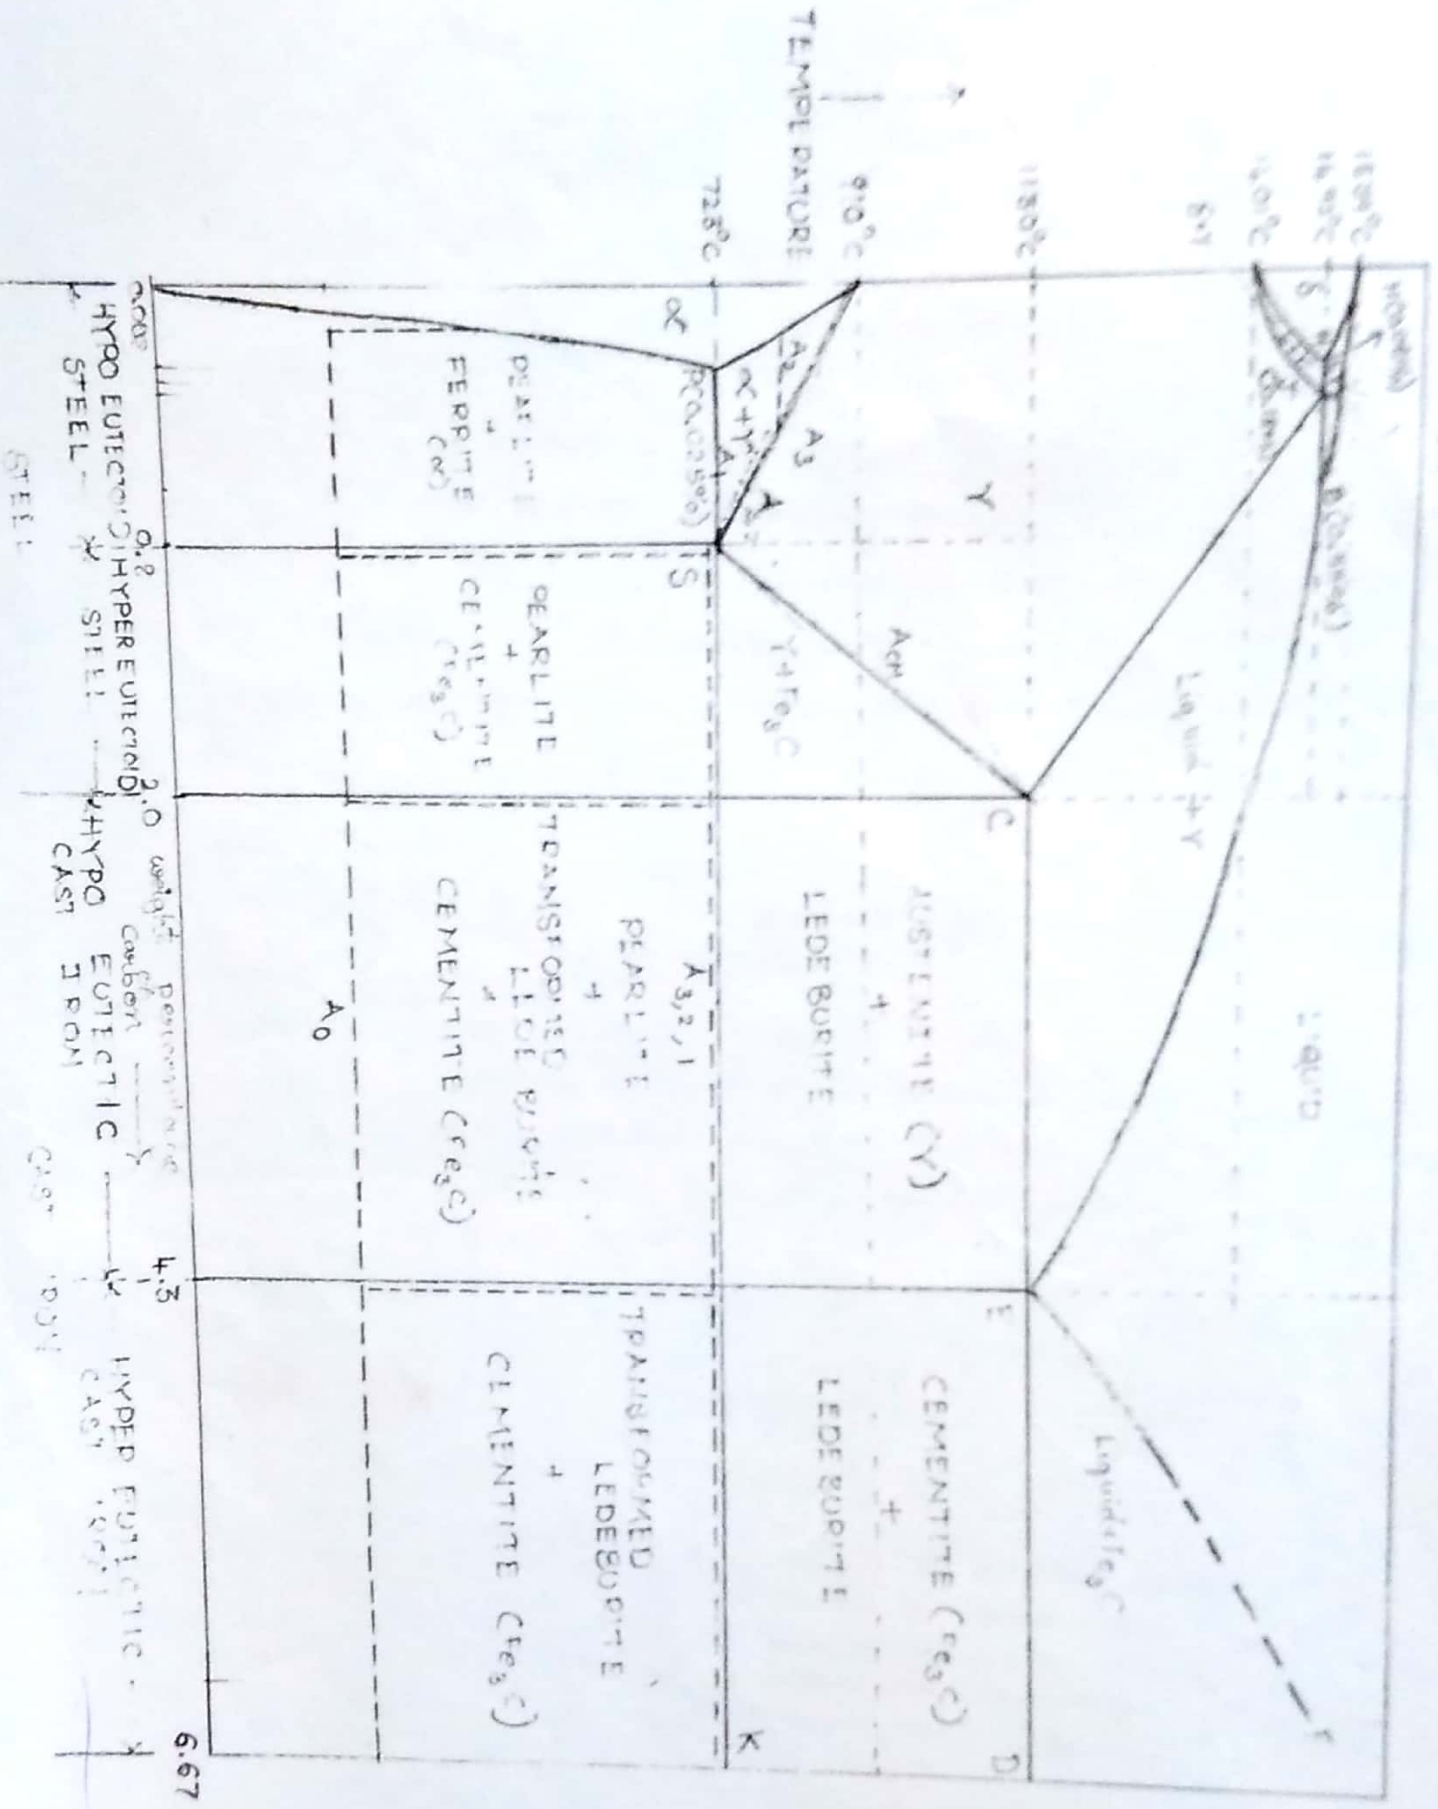 TEMPERATURE
910°C
1130°C
723°C
δ+γ
δ
Liquid + γ
LIQUID
Liquid+Fe3C
γ
A3
A2
α+γ
A1
A
α
P(0.025%)
S
ACM
γ+Fe3C
C
E
D
K
AUSTENITE (γ)
+
LEDEBURITE
CEMENTITE (Fe3C)
+
LEDEBURITE
A3,2,1
PEARLITE
+
FERRITE
(α)
PEARLITE
+
CEMENTITE
(Fe3C)
PEARLITE
+
TRANSFORMED
LEDEBURITE
+
CEMENTITE (Fe3C)
TRANSFORMED
LEDEBURITE
+
CEMENTITE (Fe3C)
A0
0.8
2.0
4.3
6.67
weight percentage
carbon
HYPO EUTECTOID
STEEL
HYPEREUTECTOID
STEEL
HYPO EUTECTIC
CAST IRON
HYPER EUTECTIC
CAST IRON
STEEL
CAST IRON